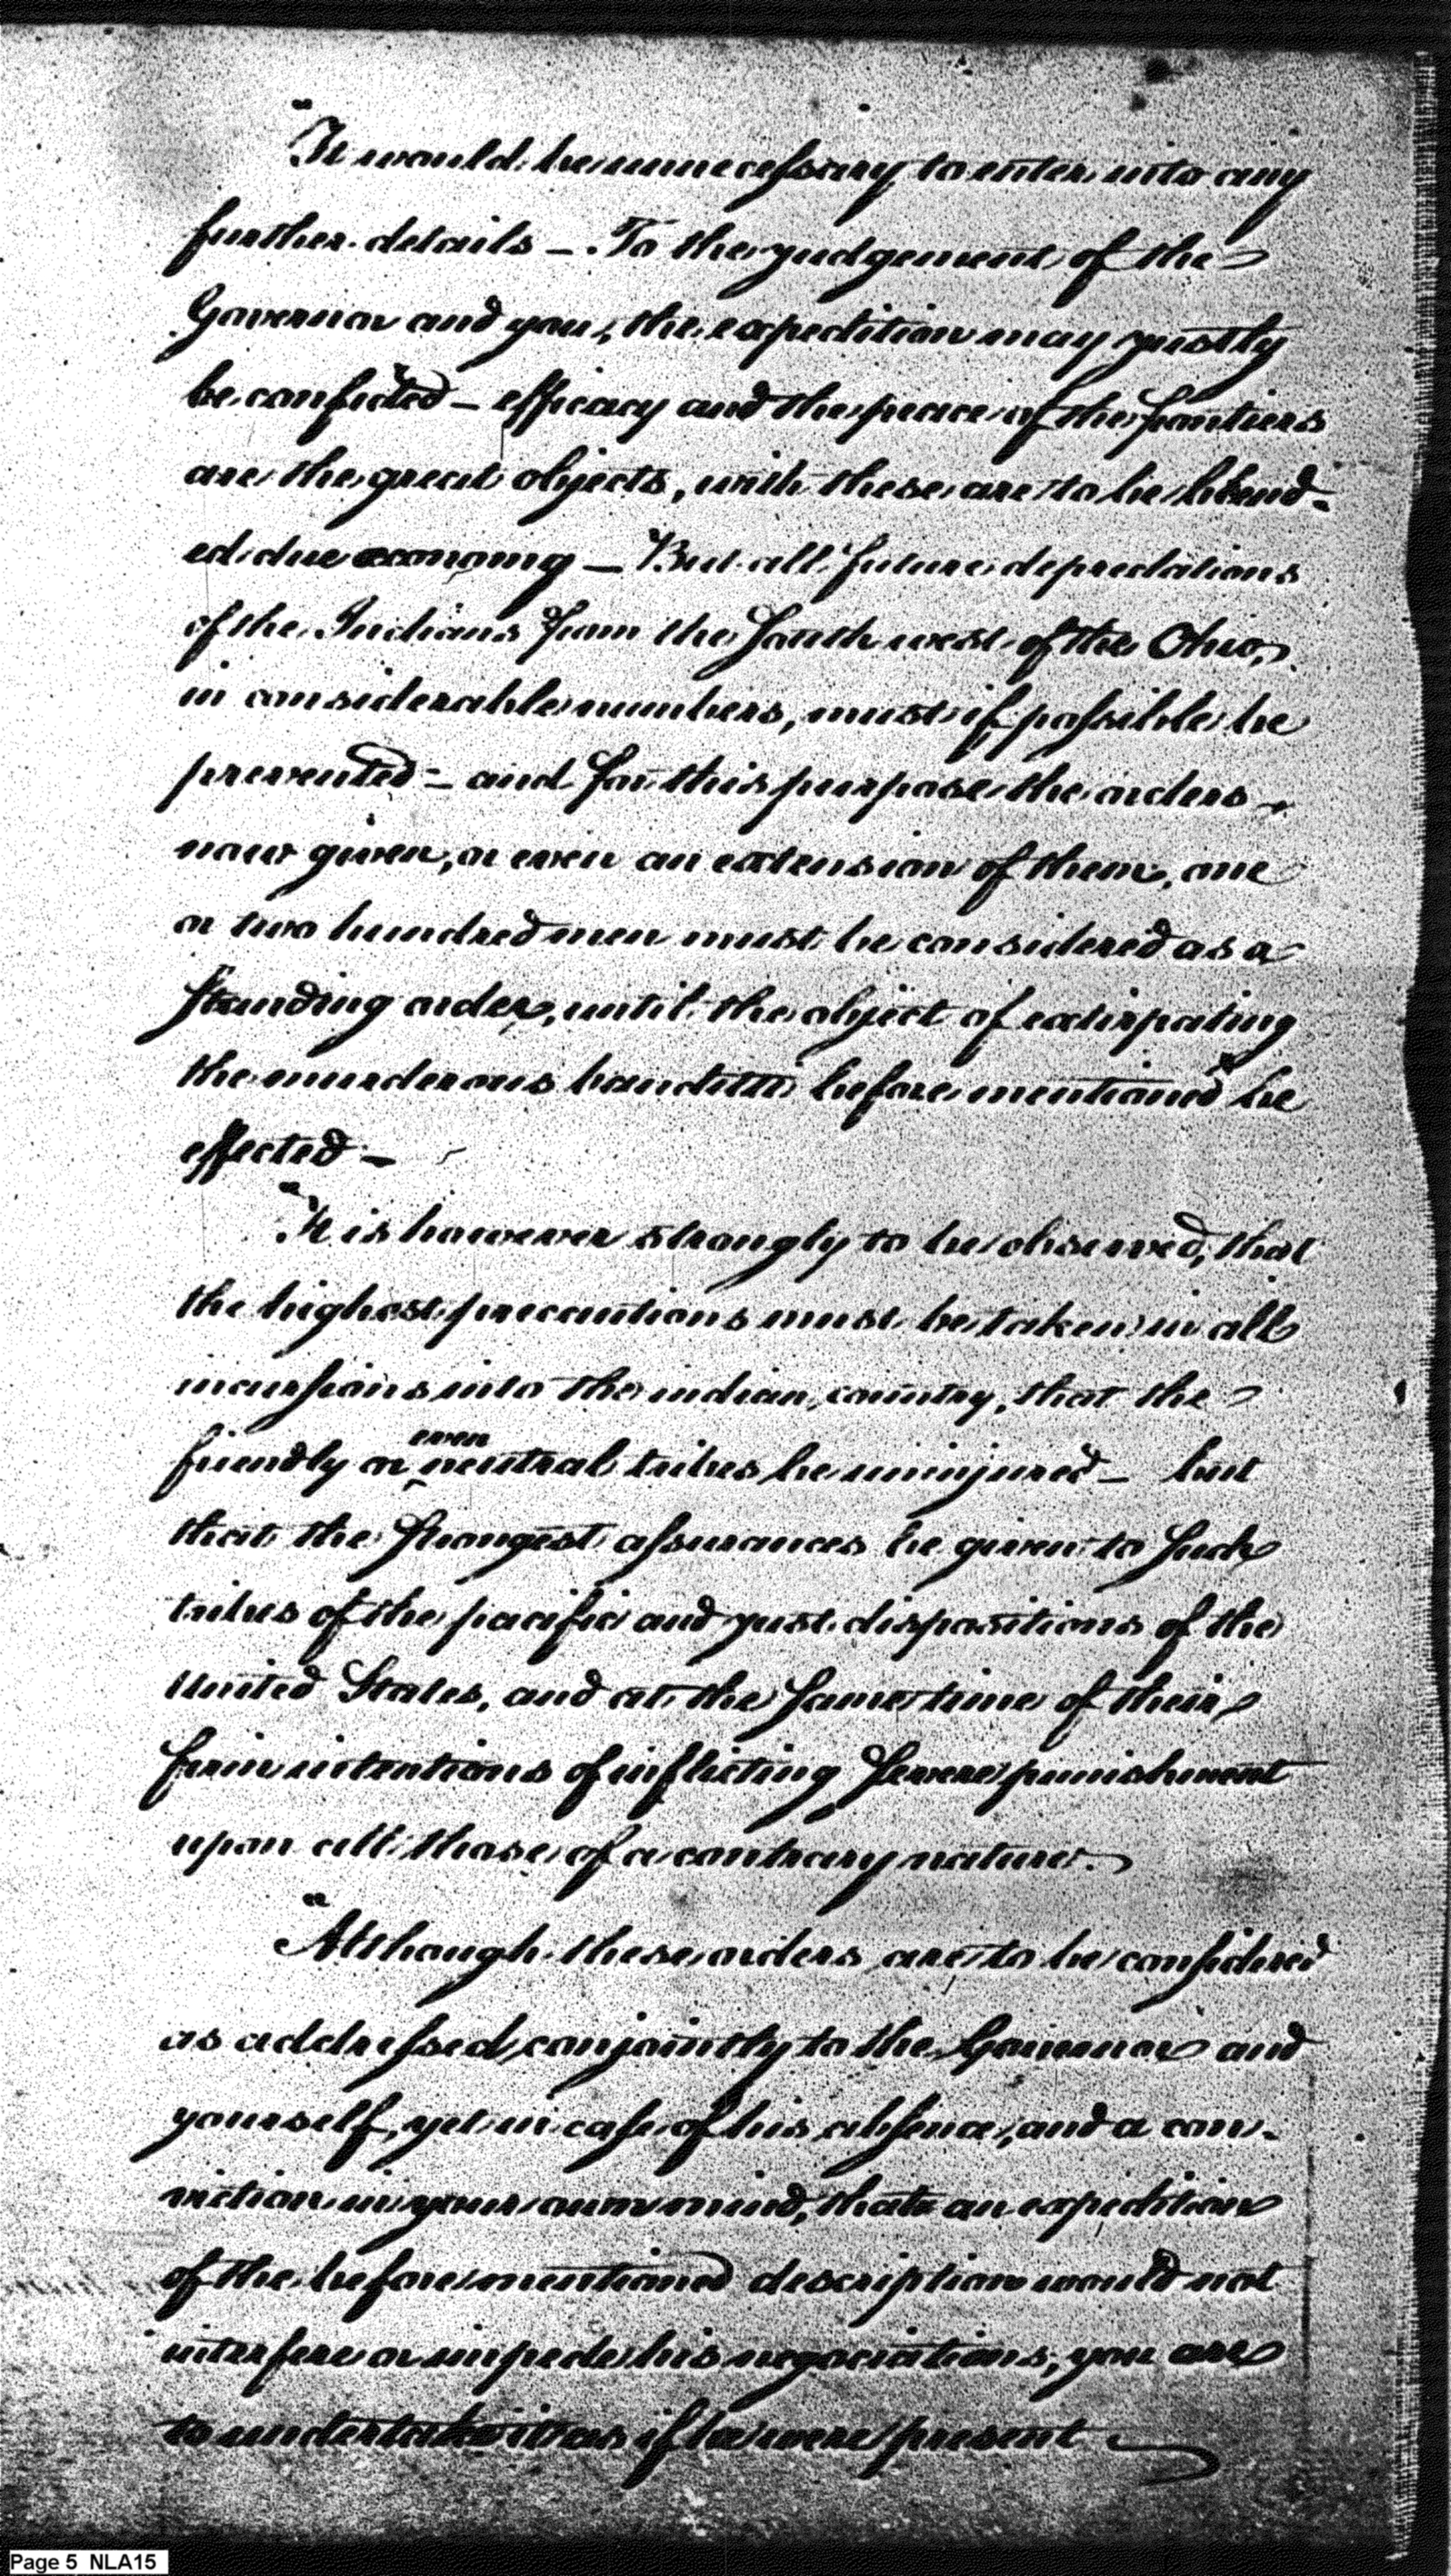 "It would be unnecessary to enter into any
further details — To the judgement of the
Governor and you, the expedition may justly
be confided — efficacy and the peace of the frontiers
are the great objects, with these are to be blend-
ed due economy — But all future depredations
of the Indians from the South west of the Ohio,
in considerable numbers, must if possible be
prevented — and for this purpose the orders
now given, or even an extension of them, one
or two hundred men must be considered as a
standing order, until the object of extirpating
the murderous banditti before mentioned be
effected —
"It is however strongly to be observed, that
the highest precautions must be taken in all
incursions into the indian country, that the
friendly or even neutral tribes be uninjured — but
that the strongest assurances be given to such
tribes of the pacific and just dispositions of the
United States, and at the same time of their
firm intentions of inflicting severe punishment
upon all those of a contrary nature.
"Although these orders are to be considered
as addressed conjointly to the Governor and
yourself, yet in case of his absence, and a con-
viction in your own mind, that an expedition
of the before mentioned description would not
interfere or impede his negociations, you are
to undertake it as if he were present
Page 5 NLA15